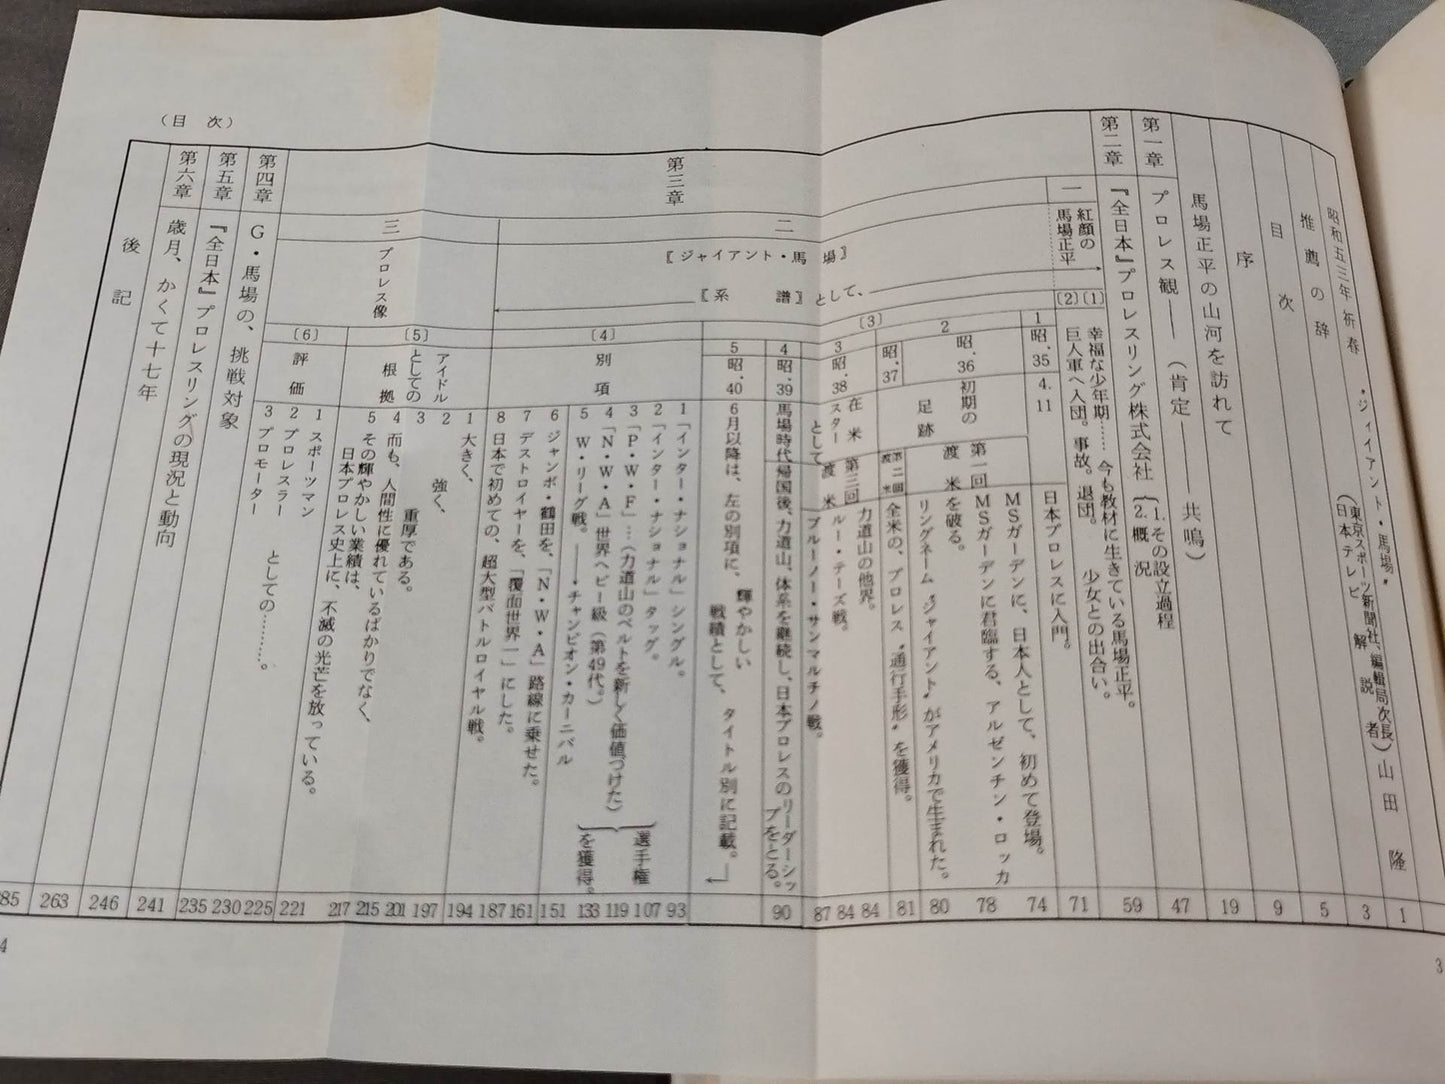 （目　次）
昭和五三年祈春　〝ジャイアント・馬場〟　1
推薦の辞　（東京スポーツ新聞社、編輯局次長）山田　隆　3
（日本テレビ　解説者）
目　次　5
序　9
馬場正平の山河を訪れて　19
第一章　プロレス観――（肯定――――共鳴）　47
第二章　『全日本』プロレスリング株式会社　59
1. その設立過程
2. 概　況
第三章
一　紅顔の馬場正平
(1)　幸福な少年期……　今も教材に生きている馬場正平。
(2)　巨人軍へ入団。事故。退団。　少女との出合い。　71
二　〖ジャイアント・馬場〗
〖系　譜〗として、
〔3〕
1　昭.35　4.11　日本プロレスに入門。　74
2　昭.36　初期の足跡　第一回渡米
MSガーデンに、日本人として、初めて登場。
MSガーデンに君臨する、アルゼンチン・ロッカを破る。　78
リングネーム〝ジャイアント〟がアメリカで生まれた。　80
昭.37　第二回渡米　全米の、プロレス〝通行手形〟を獲得。　81
3　昭.38　在米スターとして　第三回渡米
力道山の他界。　84
ルー・テーズ戦。　84
ブルーノー・サンマルチノ戦。　87
4　昭.39　馬場時代　帰国後、力道山、体系を継続し、日本プロレスのリーダーシップをとる。　90
5　昭.40　6月以降は、左の別項に、輝やかしい戦績として、タイトル別に記載。
〔4〕　別　項
1　「インター・ナショナル」シングル。　93
2　「インター・ナショナル」タッグ。　107
3　「P・W・F」…（力道山のベルトを新しく価値づけた）　119
4　「N・W・A」世界ヘビー級（第49代。）　133
選手権を獲得。
5　W・リーグ戦。――→チャンピオン・カーニバル　151
6　ジャンボ・鶴田を、「N・W・A」路線に乗せた。　161
7　デストロイヤーを、「覆面世界一」にした。　187
8　日本で初めての、超大型バトルロイヤル戦。　194
三　プロレス像
〔5〕　アイドルとしての根拠
1　大きく、　197
2　強く、　201
3　重厚である。　215
4　而も、人間性に優れているばかりでなく、　217
5　その輝やかしい業績は、日本プロレス史上に、不滅の光芒を放っている。
〔6〕　評　価
1　スポーツマン　221
2　プロレスラー　としての……。
3　プロモーター
第四章　G・馬場の、挑戦対象　225
第五章　『全日本』プロレスリングの現況と動向　230
第六章　歳月、かくて十七年　235
241
後　記　246
263
85
3
4